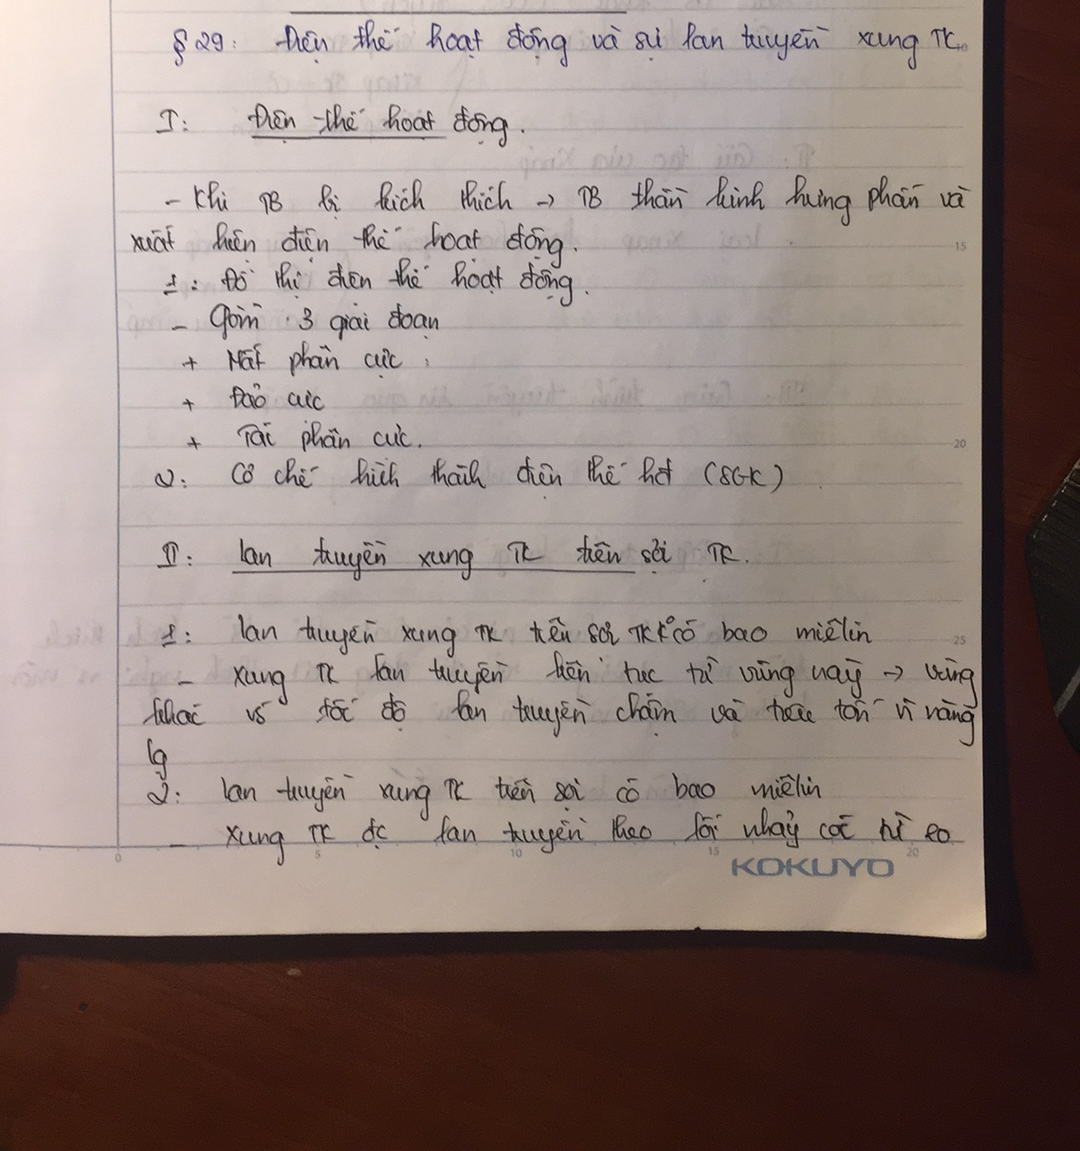 § 29: Điện thế hoạt động và sự lan truyền xung TK.
I: Điện thế hoạt động.
- Khi TB bị kích thích → TB thần kinh hưng phấn và
xuất hiện điện thế hoạt động.
1: Đồ thị điện thế hoạt động.
- Gồm 3 giai đoạn
+ Mất phân cực :
+ Đảo cực
+ Tái phân cực.
2: Cơ chế hình thành điện thế hđ (SGK)
II: lan truyền xung TK trên sợi TK.
1: lan truyền xung TK trên sợi TK k° có bao miêlin
- xung TK lan truyền liên tục từ vùng này → vùng
khác tốc độ lan truyền chậm và tiêu tốn năng
lg
2: lan truyền xung TK trên sợi có bao miêlin
- xung TK đc lan truyền theo lối nhảy cóc từ eo
15
20
25
0 5 10 15 20
KOKUYO